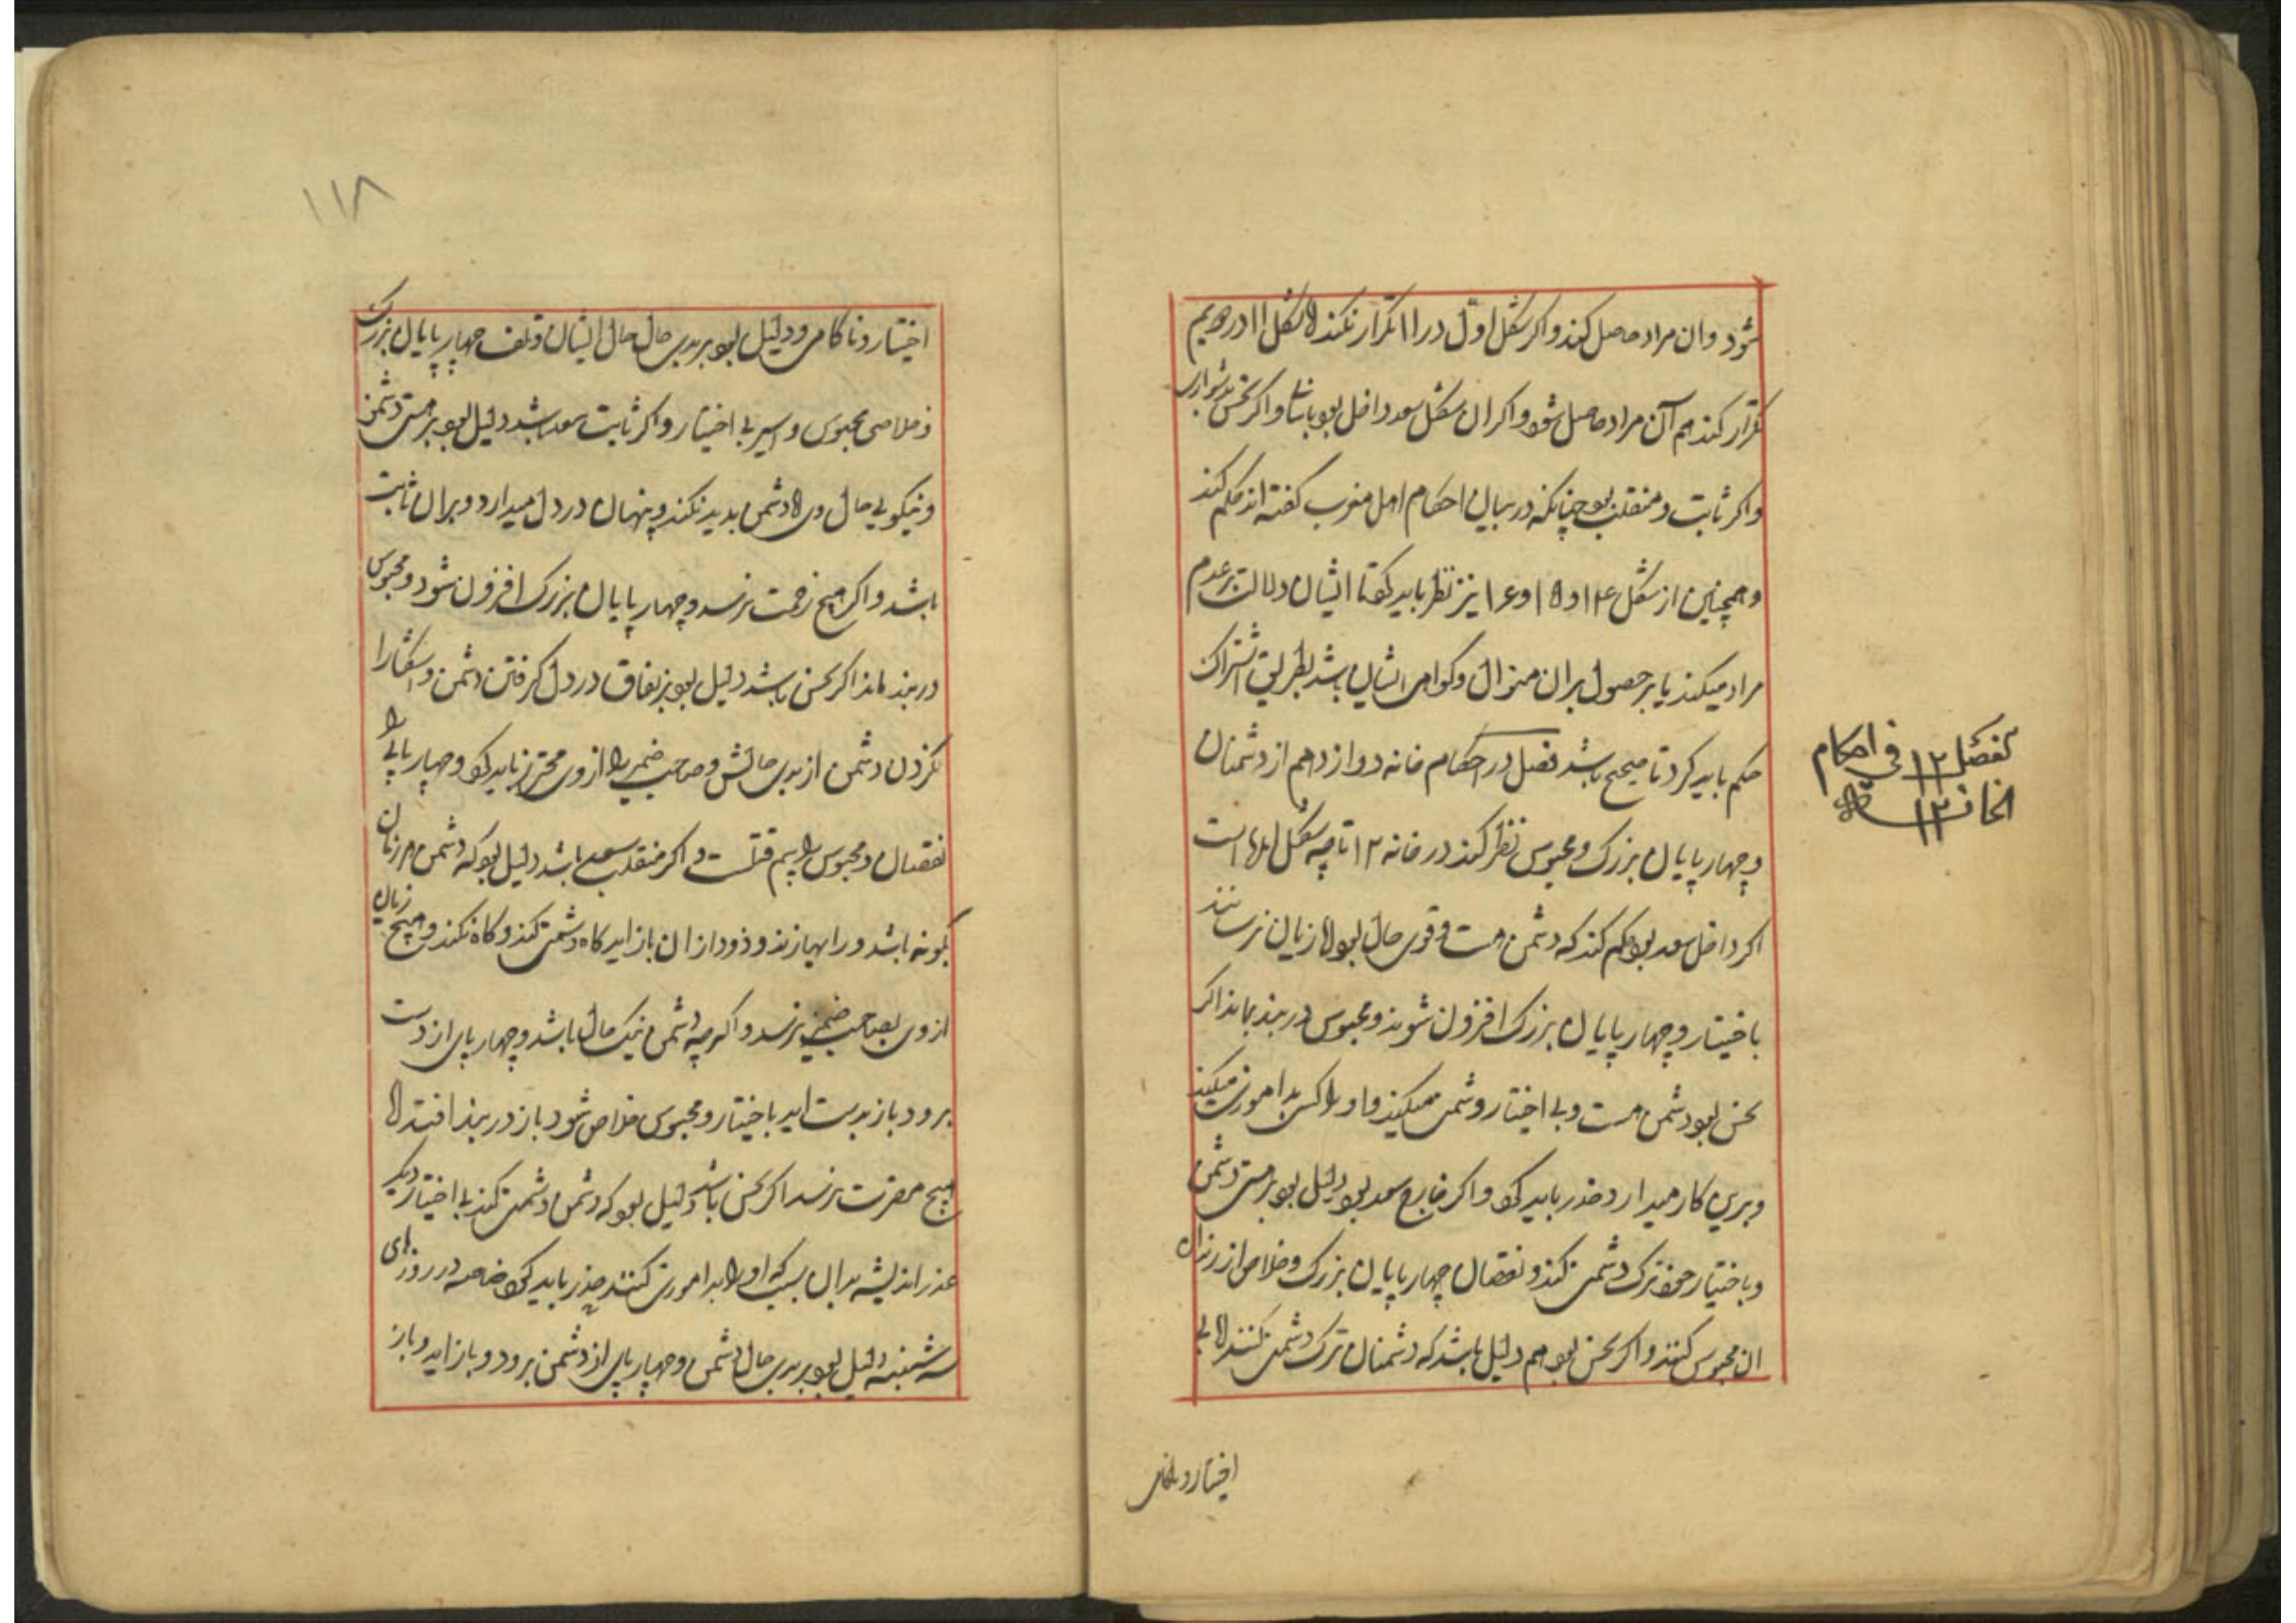 شود وان مراد حاصل کند واکر شکل اول در ۱۱ تکرار نکند اما شکل ۱۱ در دویم
تکرار کند هم آن مراد حاصل شود واکر ان شکل سعد داخل بود باسانی واکر نحس بدشواری
واکر ثابت و منقلب بود چنانکه در بیان احکام اهل مغرب کفته اند حکم کند
وهمچنین از شکل ۱۴ و ۱۵ و ۱۶ نیز نظر باید کرد تا ایشان دلالت بر عدم
مراد میکند یا بر حصول بران منوال وکواهی ایشان باشد بطریق اشتراک
حکم باید کرد تا صحیح باشد فصل در احکام خانه دوازدهم از دشمنان
وچهار پایان بزرک ومحبوس نظر کند در خانه ۱۲ تا چه شکل است
اکر داخل سعد بود حکم کند که دشمن هست وقوی حال بود اما زیان نرسانند
باختیار وچهار پایان بزرک افزون شوند ومحبوس در بند بماند اکر
نحس بود دشمن هست وبی اختیار دشمنی میکند واورا کسی بدآموزی میکند
وبرین کار میدارد حذر باید کرد واکر خارج سعد بود دلیل بود بر هستی دشمن
وباختیار خود ترک دشمنی کند ونقصان چهار پایان بزرک وخلاص از زندان
ان محبوس کنند واکر نحس بود هم دلیل باشد که دشمنان ترک دشمنی کنند اما بی
اختیار وناکامی
الفصل ۱۲ فی احکام
الخانه ۱۲
۱۱۸
اختیار وناکامی ودلیل بود بر بدی حال ایشان وتلف چهار پایان بزرک
وخلاصی محبوس واسیر بی اختیار واکر ثابت سعد باشد دلیل بود بر هستی دشمن
ونیکویی حال وی اما دشمنی بدید نکند وپنهان در دل میدارد وبران ثابت
باشد واکر هیچ زحمت نرسد وچهار پایان بزرک افزون شود ومحبوس
در بند ماند اکر نحس باشد دلیل بود بر نفاق در دل کرفتن دشمن واشکارا
نکردن دشمن از بدی حالش وصاحب ضمیر را از وی محترز باید بود وچهار پای را
نقصان ومحبوس را بیم قتلست واکر منقلب سعد باشد دلیل بود که دشمن هر زمان
بکونه باشد ورا بیازند وزود از ان باز اید کاه دشمنی کند وکاه نکند وهیچ زیان
از وی بصاحب ضمیر نرسد واکر چه دشمن نیک حال باشد وچهار پای از دست
برود باز بدست اید باختیار ومحبوس خلاص شود باز در بند افتد اما
هیچ مضرت نرسد اکر نحس باشد دلیل بود که دشمن دشمنی کند بی اختیار دیکر
عذر اندیشد بدان سبب که او را بدآموزی کنند حذر باید کرد خاصه در روزهای
سه شنبه دلیل بود بر بدی حال دشمن وچهار پای از دشمن برود وباز اید وباز